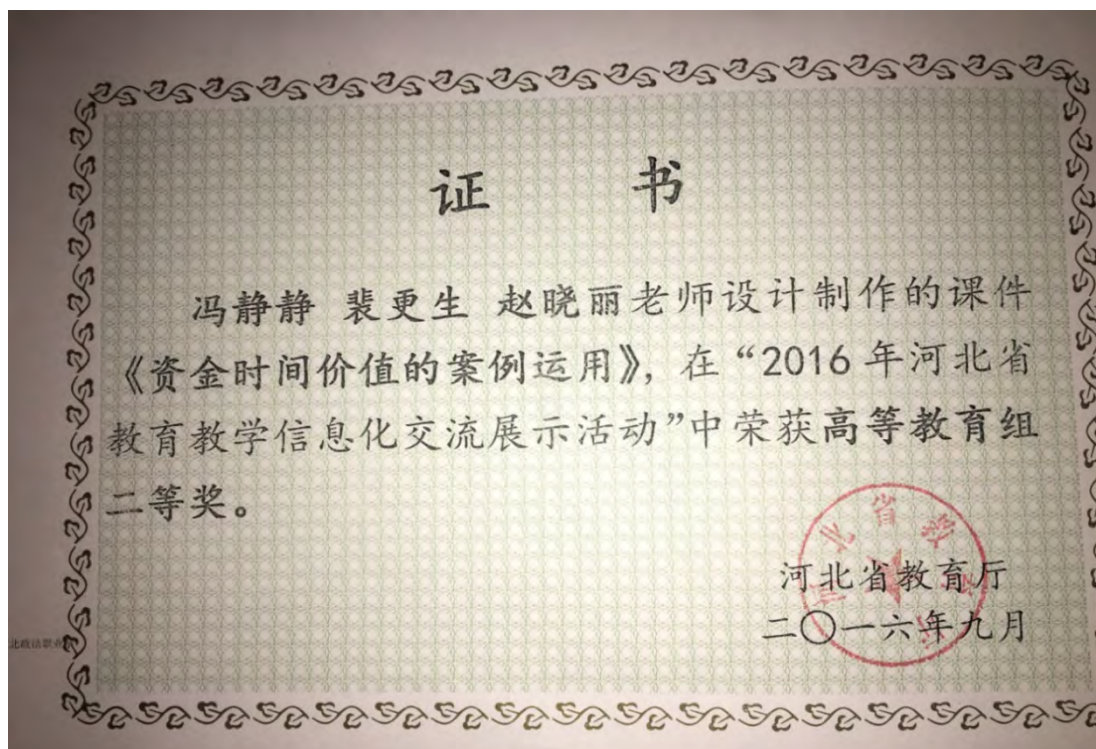 证 书
冯静静 裴更生 赵晓丽老师设计制作的课件
《资金时间价值的案例运用》，在“2016年河北省
教育教学信息化交流展示活动”中荣获高等教育组
二等奖。
河北省教育厅
二〇一六年九月
北政法职业